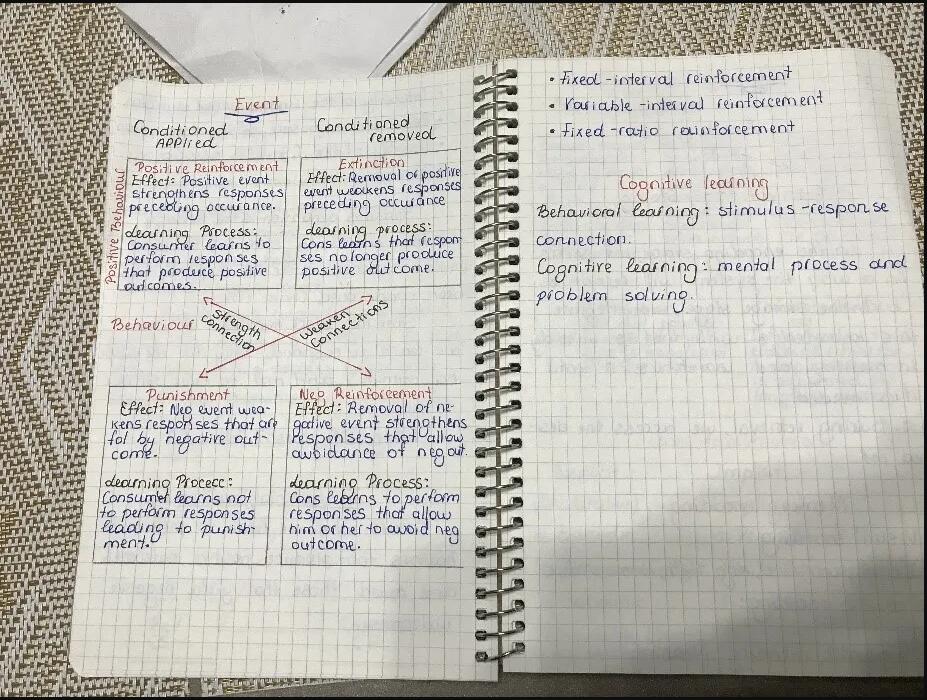 Event
Conditioned
APPlied
Conditioned
removed
Positive Behaviour
Positive Reinforcement
Effect: Positive event
strengthens responses
preceding occurance.
Learning Process:
Consumer learns to
perform responses
that produce positive
outcomes.
Extinction
Effect: Removal of positive
event weakens responses
preceding occurance
Learning process:
Cons learns that respon-
ses no longer produce
positive outcome.
Behaviour
Strength
connection
Weaken
Connections
Punishment
Effect: Neg event wea-
kens responses that are
fol by negative out-
come.
Learning Procecc:
Consumer learns not
to perform responses
leading to punish-
ment.
Neg Reinforcement
Effect: Removal of ne-
gative event strengthens
responses that allow
avoidance of neg out.
Learning Process:
Cons learns to perform
responses that allow
him or her to avoid neg
outcome.
• Fixed-interval reinforcement
• Variable-interval reinforcement
• Fixed-ratio rainforcement
Cognitive learning
Behavioral learning: stimulus-response
connection.
Cognitive learning: mental process and
problem solving.